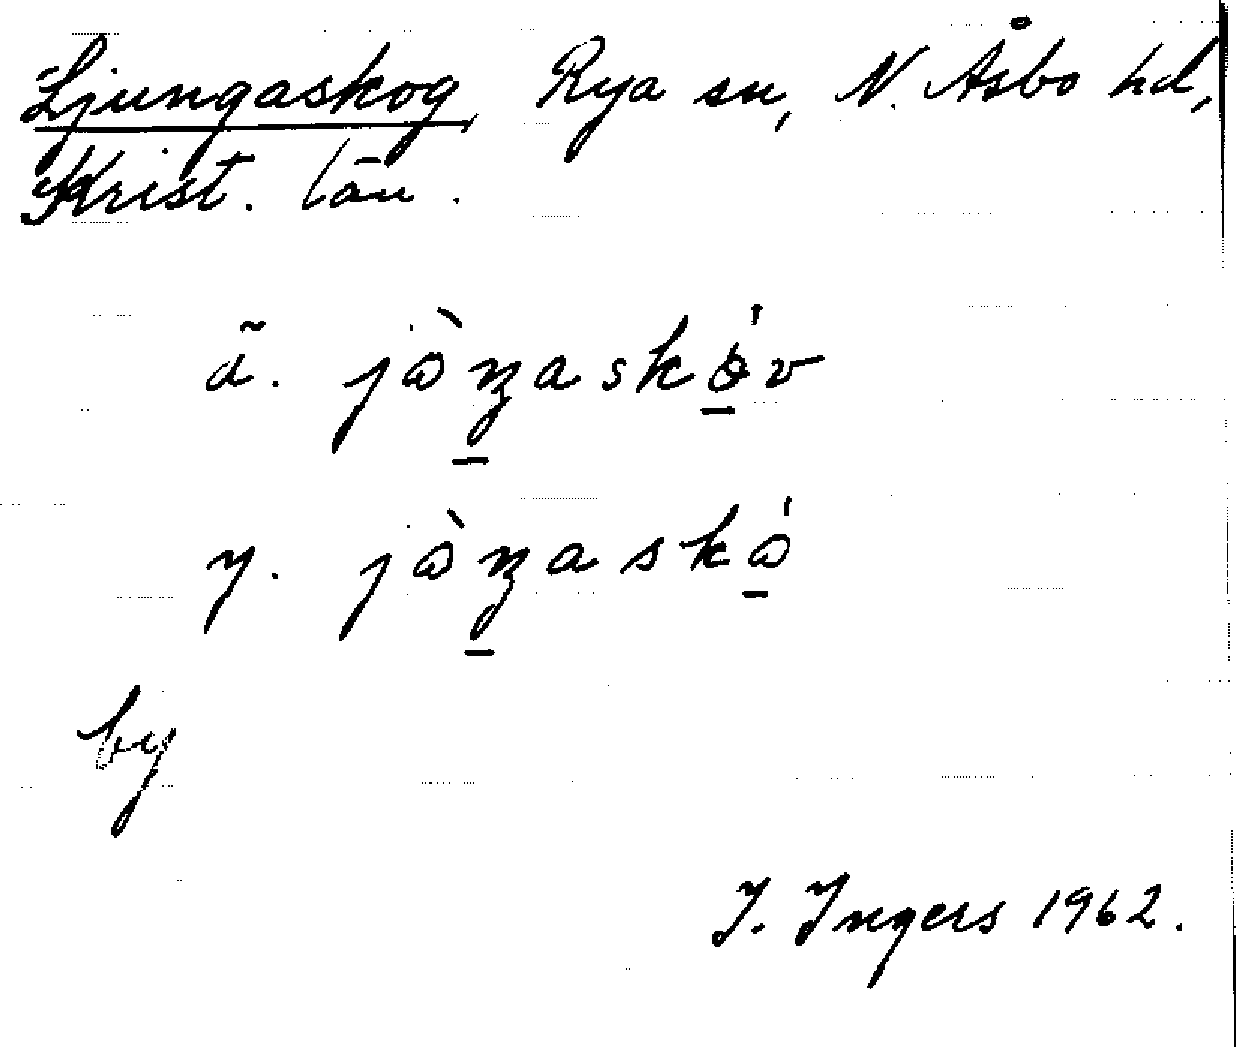 Ljungaskog, Rya sn, N. Åsbo hd,
Krist. län.
ä. jòŋaskó̱v
y. jòŋaskó̱
by
I. Ingers 1962.